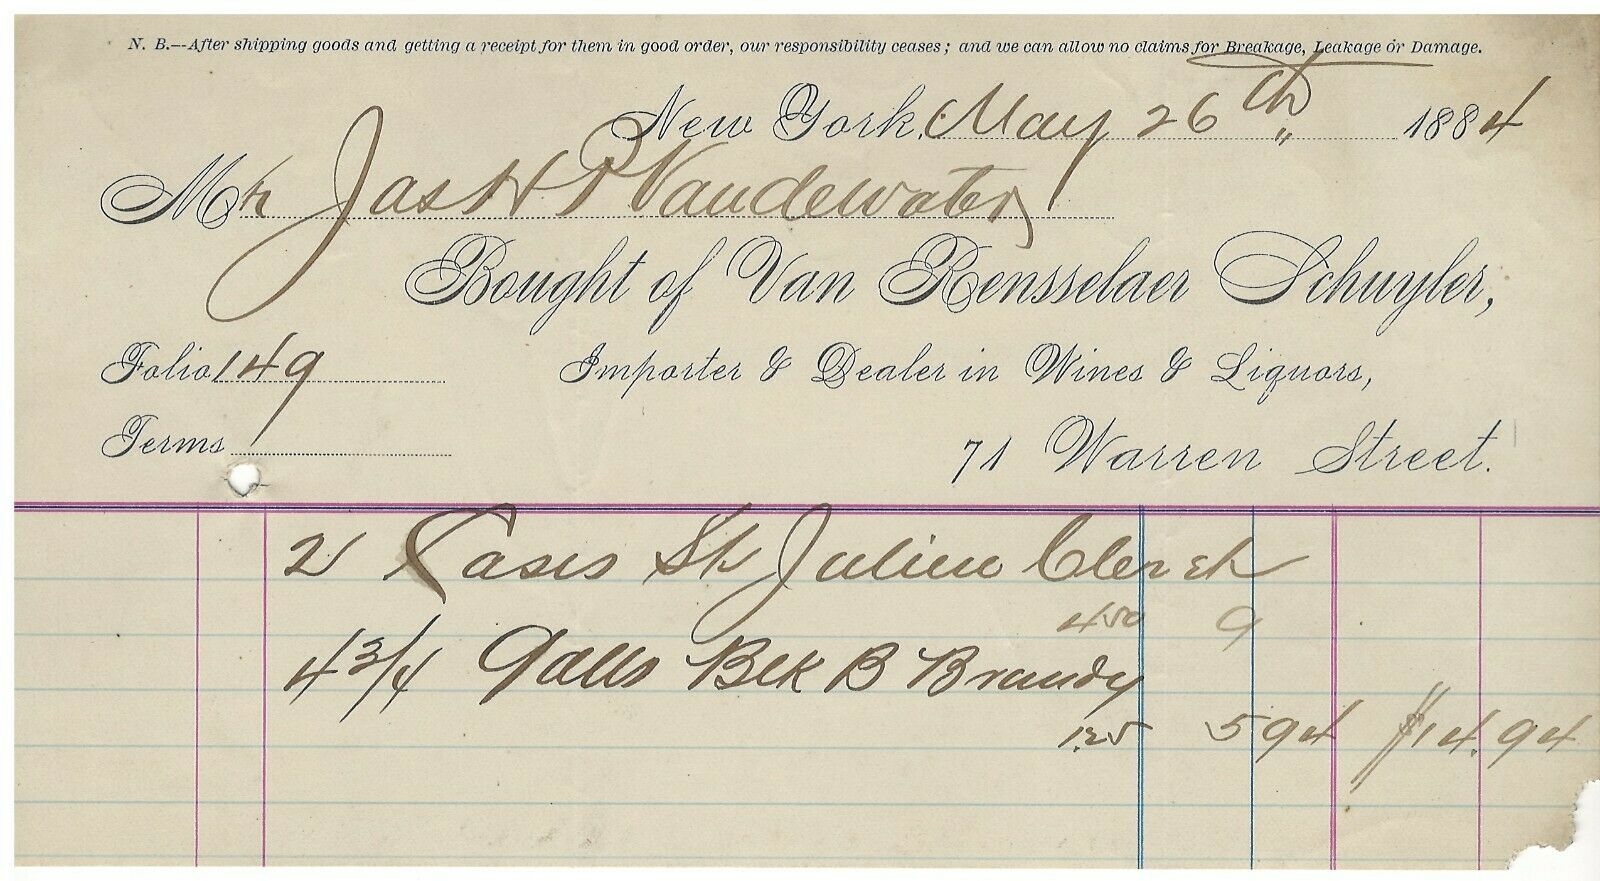 N. B.--After shipping goods and getting a receipt for them in good order, our responsibility ceases; and we can allow no claims for Breakage, Leakage or Damage.
New York, May 26th 1884
Mr Jas H P Vandewater
Bought of Van Rensselaer Schuyler,
Folio 149 Importer & Dealer in Wines & Liquors,
Terms 71 Warren Street.
2 Cases St Julien
450 9
4 3/4 Galls Blk B Brandy
1.25 5 94 $14.94